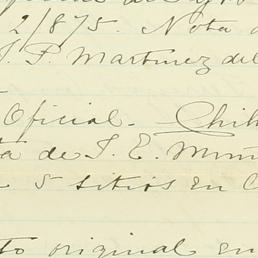 2/875. Nota
J. F. Martinez del
Oficial. Chih
ta de J. E. Muñ
5 sitios en C
to original en